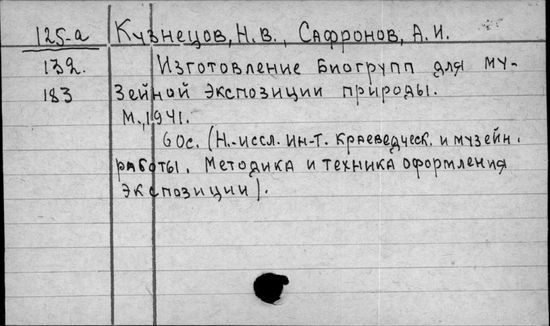 125-а Кузнецов, Н.В., Сафронов, А.И.
132. Изготовление биогрупп для му-
183 зейной экспозиции природы.
М., 1941.
60с. (Н.-иссл. ин-т. краеведческ. и музейн.
работы. Методика и техника оформления
экспозиции).